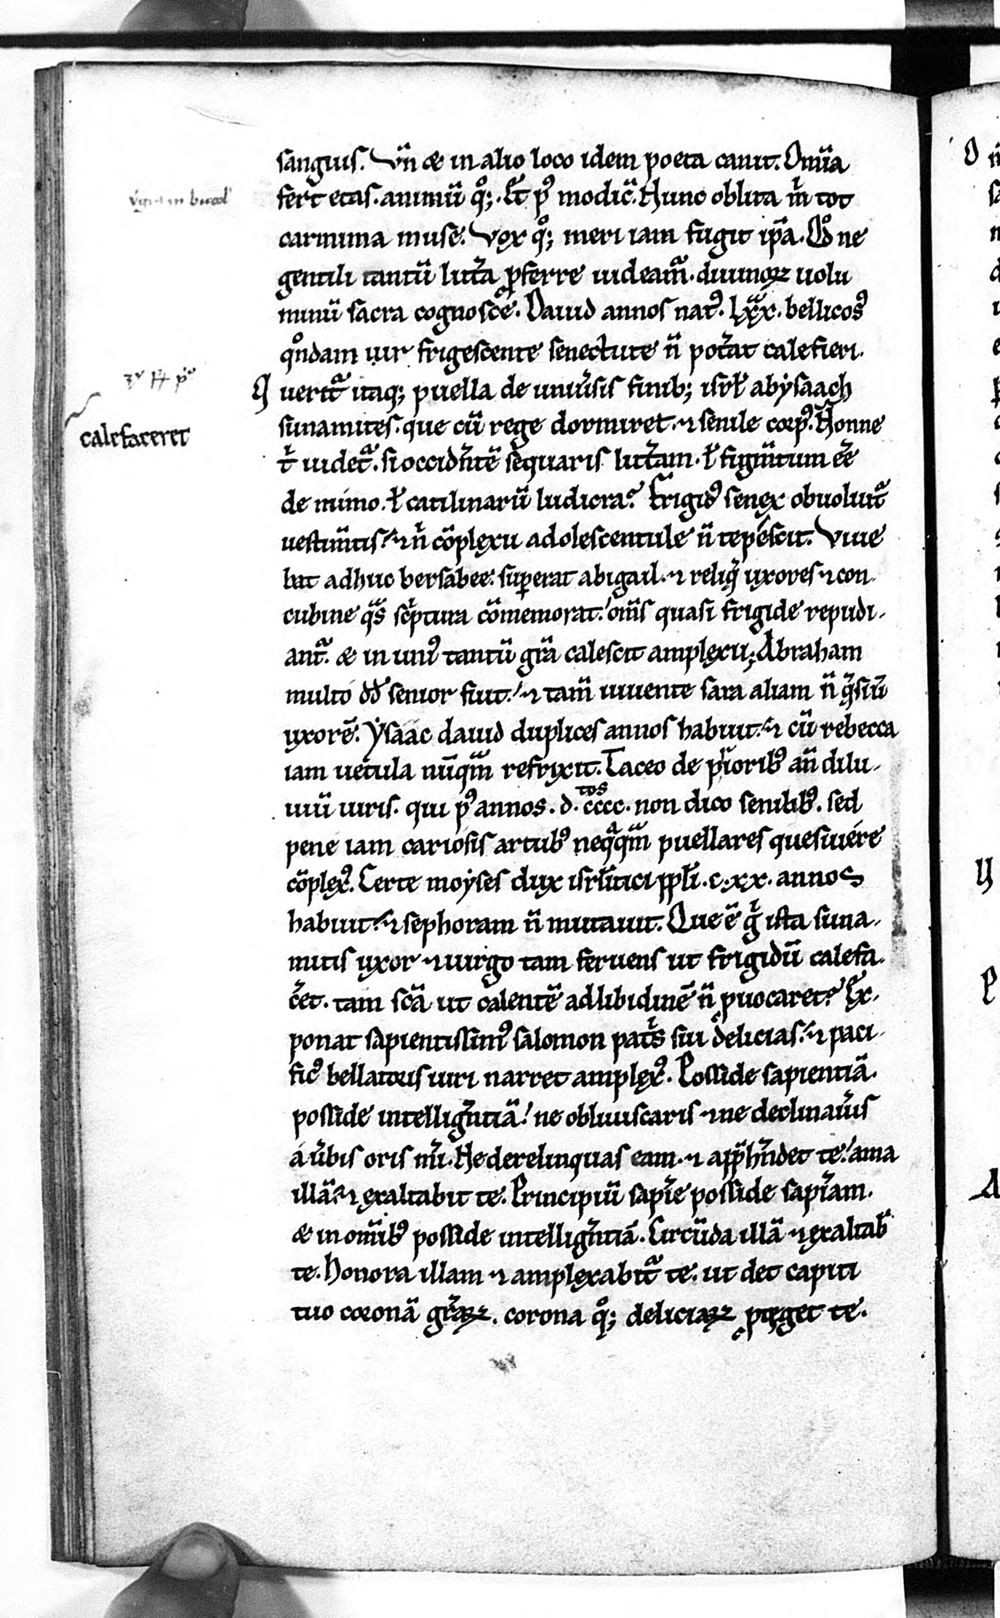 sanguis. Vn̄ & in alio loco idem poeta canit. Om̄ia
virgilius in bucol
fert etas. animū qͦ;. Et pꝰ modic̄. Nunc oblita m̄ tot
carmina muse. Vox qͦ; meri iam fugit ip̄a. Qd̓ ne
gentili tantū litt̄a ꝓferre uideam᷑. diuinoꝝ uolu
minū sacra cognosce. Dauid annos natꝰ. lxx. bellicosꝰ
qͦndam uir frigescente senectute n̄ pot̄at calefieri.
3ͫ R̄ pͦ
Querit᷑ itaq; puella de uniu̓sis finib; isrl̓ abẏsaach
calefaceret
sunamites. que cū rege dormiret. ⁊ senile corpꝰ. Nonne
t̓ uidet᷑. si occidn̄tē sequaris litt̄am. l̓ figm̄tum eē
de mimo. l̓ catilinarū ludicra? Frigidꝰ senex obuoluit᷑
uestim̄tis. ⁊ n̓ cōplexu adolescentule n̄ tepescit. Viue
bat adhuc bersabee. superat abigail. ⁊ reliq̓ uxores ⁊ con
cubine qᷓs sc̓ptura cōmemorat. om̄s quasi frigide repudi-
ant᷑. & in uniꝰ tantū gr̄a calescit amplexu; Abraham
multo dd̓ senior fuit. ⁊ tam̄ uiuente sara aliam n̄ q̓siuit
uxorē. Ẏsaac dauid duplices annos habuit. ⁊ cū rebecca
iam uetula nūqᷓm refrixit. Taceo de p̓oribꝰ an̄ dilu-
uiū uiris. qui pꝰ annos. d.cccc.ᵗᵒˢ non dico senilibꝰ. sed
pene iam cariosis artubꝰ neqᷓqᷓm puellares quesiuere
cōplexꝰ. Certe moẏses dux isrl̄itici ꝓpl̄i .c.xx. annos
habuit. ⁊ sephoram n̄ mutauit. Que ē g̓ ista suna-
mitis uxor ⁊ uirgo tam feruens ut frigidū calefa-
c̓et. tam sc̄a ut calentē ad libidinē n̄ ꝓuocaret? Ex-
ponat sapientissimꝰ salomon pat̓s sui delicias. ⁊ paci-
ficꝰ bellatoris uiri narret amplexꝰ. Posside sapientiā.
posside intellign̄tiā. ne obliuiscaris ⁊ ne declinau̓is
a u̓bis oris m̄i. Ne derelinquas eam. ⁊ app̄hn̄det te. ama
illā. ⁊ exaltabit te. Principiū sapīe posside sapīam.
& in om̄ibꝰ posside intellign̄tiā. Circūda illā ⁊ exaltab̓
te. Honora illam ⁊ amplexabit᷑ te. ut det capiti
tuo coronā gr̄aꝝ. corona qͦ; deliciaꝝ ꝓteget te.